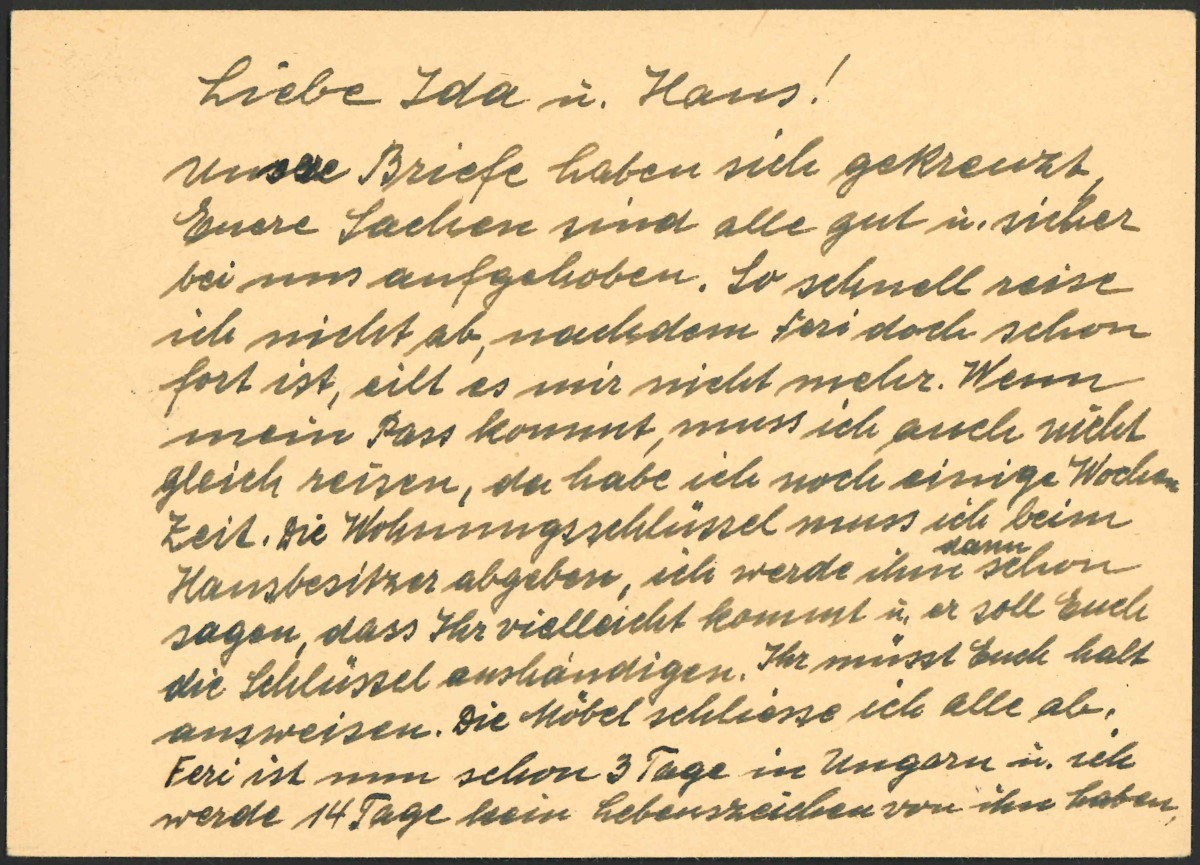 Liebe Ida u. Hans!
Unsere Briefe haben sich gekreuzt,
Euere Sachen sind alle gut u. sicher
bei uns aufgehoben. So schnell reise
ich nicht ab, nachdem Feri doch schon
fort ist, eilt es mir nicht mehr. Wenn
mein Pass kommt, muss ich auch nicht
gleich reisen, da habe ich noch einige Wochen
Zeit. Die Wohnungsschlüssel muss ich beim
Hausbesitzer abgeben, ich werde ihm dann schon
sagen, dass Ihr vielleicht kommt u. er soll Euch
die Schlüssel aushändigen. Ihr müsst Euch halt
ausweisen. Die Möbel schliesse ich alle ab.
Feri ist nun schon 3 Tage in Ungarn u. ich
werde 14 Tage kein Lebenszeichen von ihm haben,